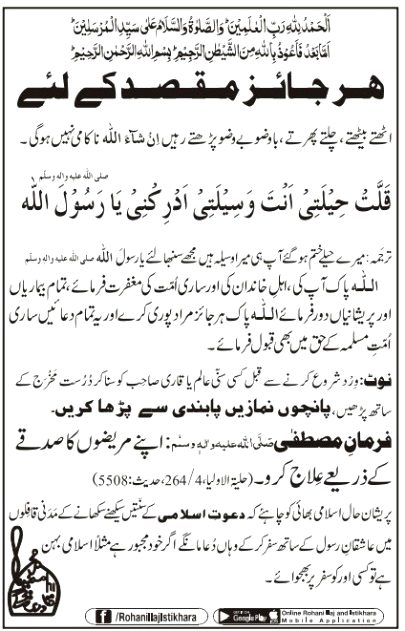 اَلْحَمْدُ لِلّٰهِ رَبِّ الْعٰلَمِیْنَ وَالصَّلٰوةُ وَالسَّلَامُ عَلٰی سَیِّدِ الْمُرْسَلِیْنَ
اَمَّابَعْدُ فَاَعُوْذُ بِاللّٰهِ مِنَ الشَّیْطٰنِ الرَّجِیْمِ بِسْمِ اللّٰهِ الرَّحْمٰنِ الرَّحِیْمِ
ہر جائز مقصد کے لئے
اٹھتے بیٹھتے، چلتے پھرتے، باوضو بے وضو پڑھتے رہیں اِنْ شَآءَ اللہ ناکامی نہیں ہوگی۔
قَلَّتْ حِیْلَتِیْ اَنْتَ وَسِیْلَتِیْ اَدْرِکْنِیْ یَا رَسُوْلَ اللّٰه صلی اللہ علیہ والہ وسلم
ترجمہ: میرے حیلے ختم ہوگئے آپ ہی میرا وسیلہ ہیں مجھے سنبھالئے یارسول اللہ صلی اللہ علیہ والہ وسلم
اللہ پاک آپ کی، اہلِ خاندان کی اور ساری اُمّت کی مغفرت فرمائے، تمام بیماریاں
اور پریشانیاں دور فرمائے اللہ پاک ہر جائز مراد پوری کرے اور یہ تمام دعائیں ساری
اُمّتِ مسلمہ کے حق میں بھی قبول فرمائے۔
نوٹ: وِرْد شروع کرنے سے قبل کسی سُنّی عالم یا قاری صاحب کو سنا کر دُرست مَخْرَج کے
ساتھ پڑھیں، پانچوں نمازیں پابندی سے پڑھا کریں۔
فرمانِ مصطفٰی صَلَّی اللہ علیہ والہ وسلم: اپنے مریضوں کا صدقے
کے ذریعے علاج کرو۔ (حلیۃ الاولیا، 4/264، حدیث: 5508)
پریشان حال اسلامی بھائی کو چاہئے کہ دعوتِ اسلامی کے سنّتیں سیکھنے سکھانے کے مَدَنی قافلوں
میں عاشقانِ رسول کے ساتھ سفر کر کے وہاں دُعا مانگے اگر خود مجبور ہے مثلاً اسلامی بہن
ہے تو کسی اور کو سفر پر بھجوائے۔
f /RohaniIlajIstikhara
GET IT ON Google Play
Online Rohani Ilaj and Istikhara
Mobile Application